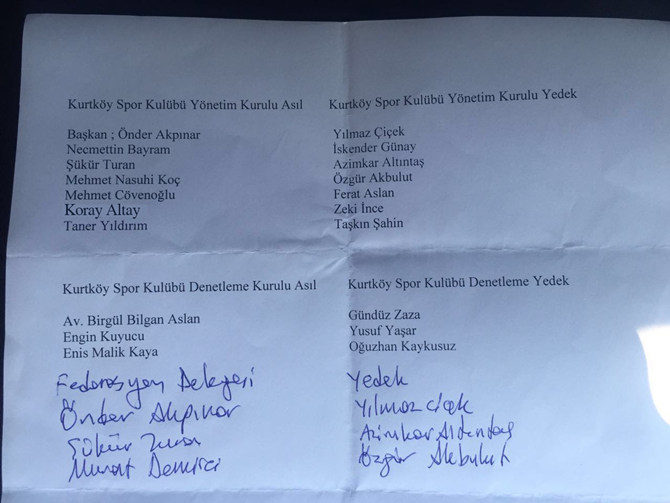 Kurtköy Spor Kulübü Yönetim Kurulu Asıl
Başkan ; Önder Akpınar
Necmettin Bayram
Şükür Turan
Mehmet Nasuhi Koç
Mehmet Cövenoğlu
Koray Altay
Taner Yıldırım
Kurtköy Spor Kulübü Yönetim Kurulu Yedek
Yılmaz Çiçek
İskender Günay
Azimkar Altıntaş
Özgür Akbulut
Ferat Aslan
Zeki İnce
Taşkın Şahin
Kurtköy Spor Kulübü Denetleme Kurulu Asıl
Av. Birgül Bilgan Aslan
Engin Kuyucu
Enis Malik Kaya
Kurtköy Spor Kulübü Denetleme Yedek
Gündüz Zaza
Yusuf Yaşar
Oğuzhan Kaykusuz
Federasyon Delegesi
Önder Akpınar
Şükür Turan
Murat Demirci
Yedek
Yılmaz Çiçek
Azimkar Altıntaş
Özgür Akbulut